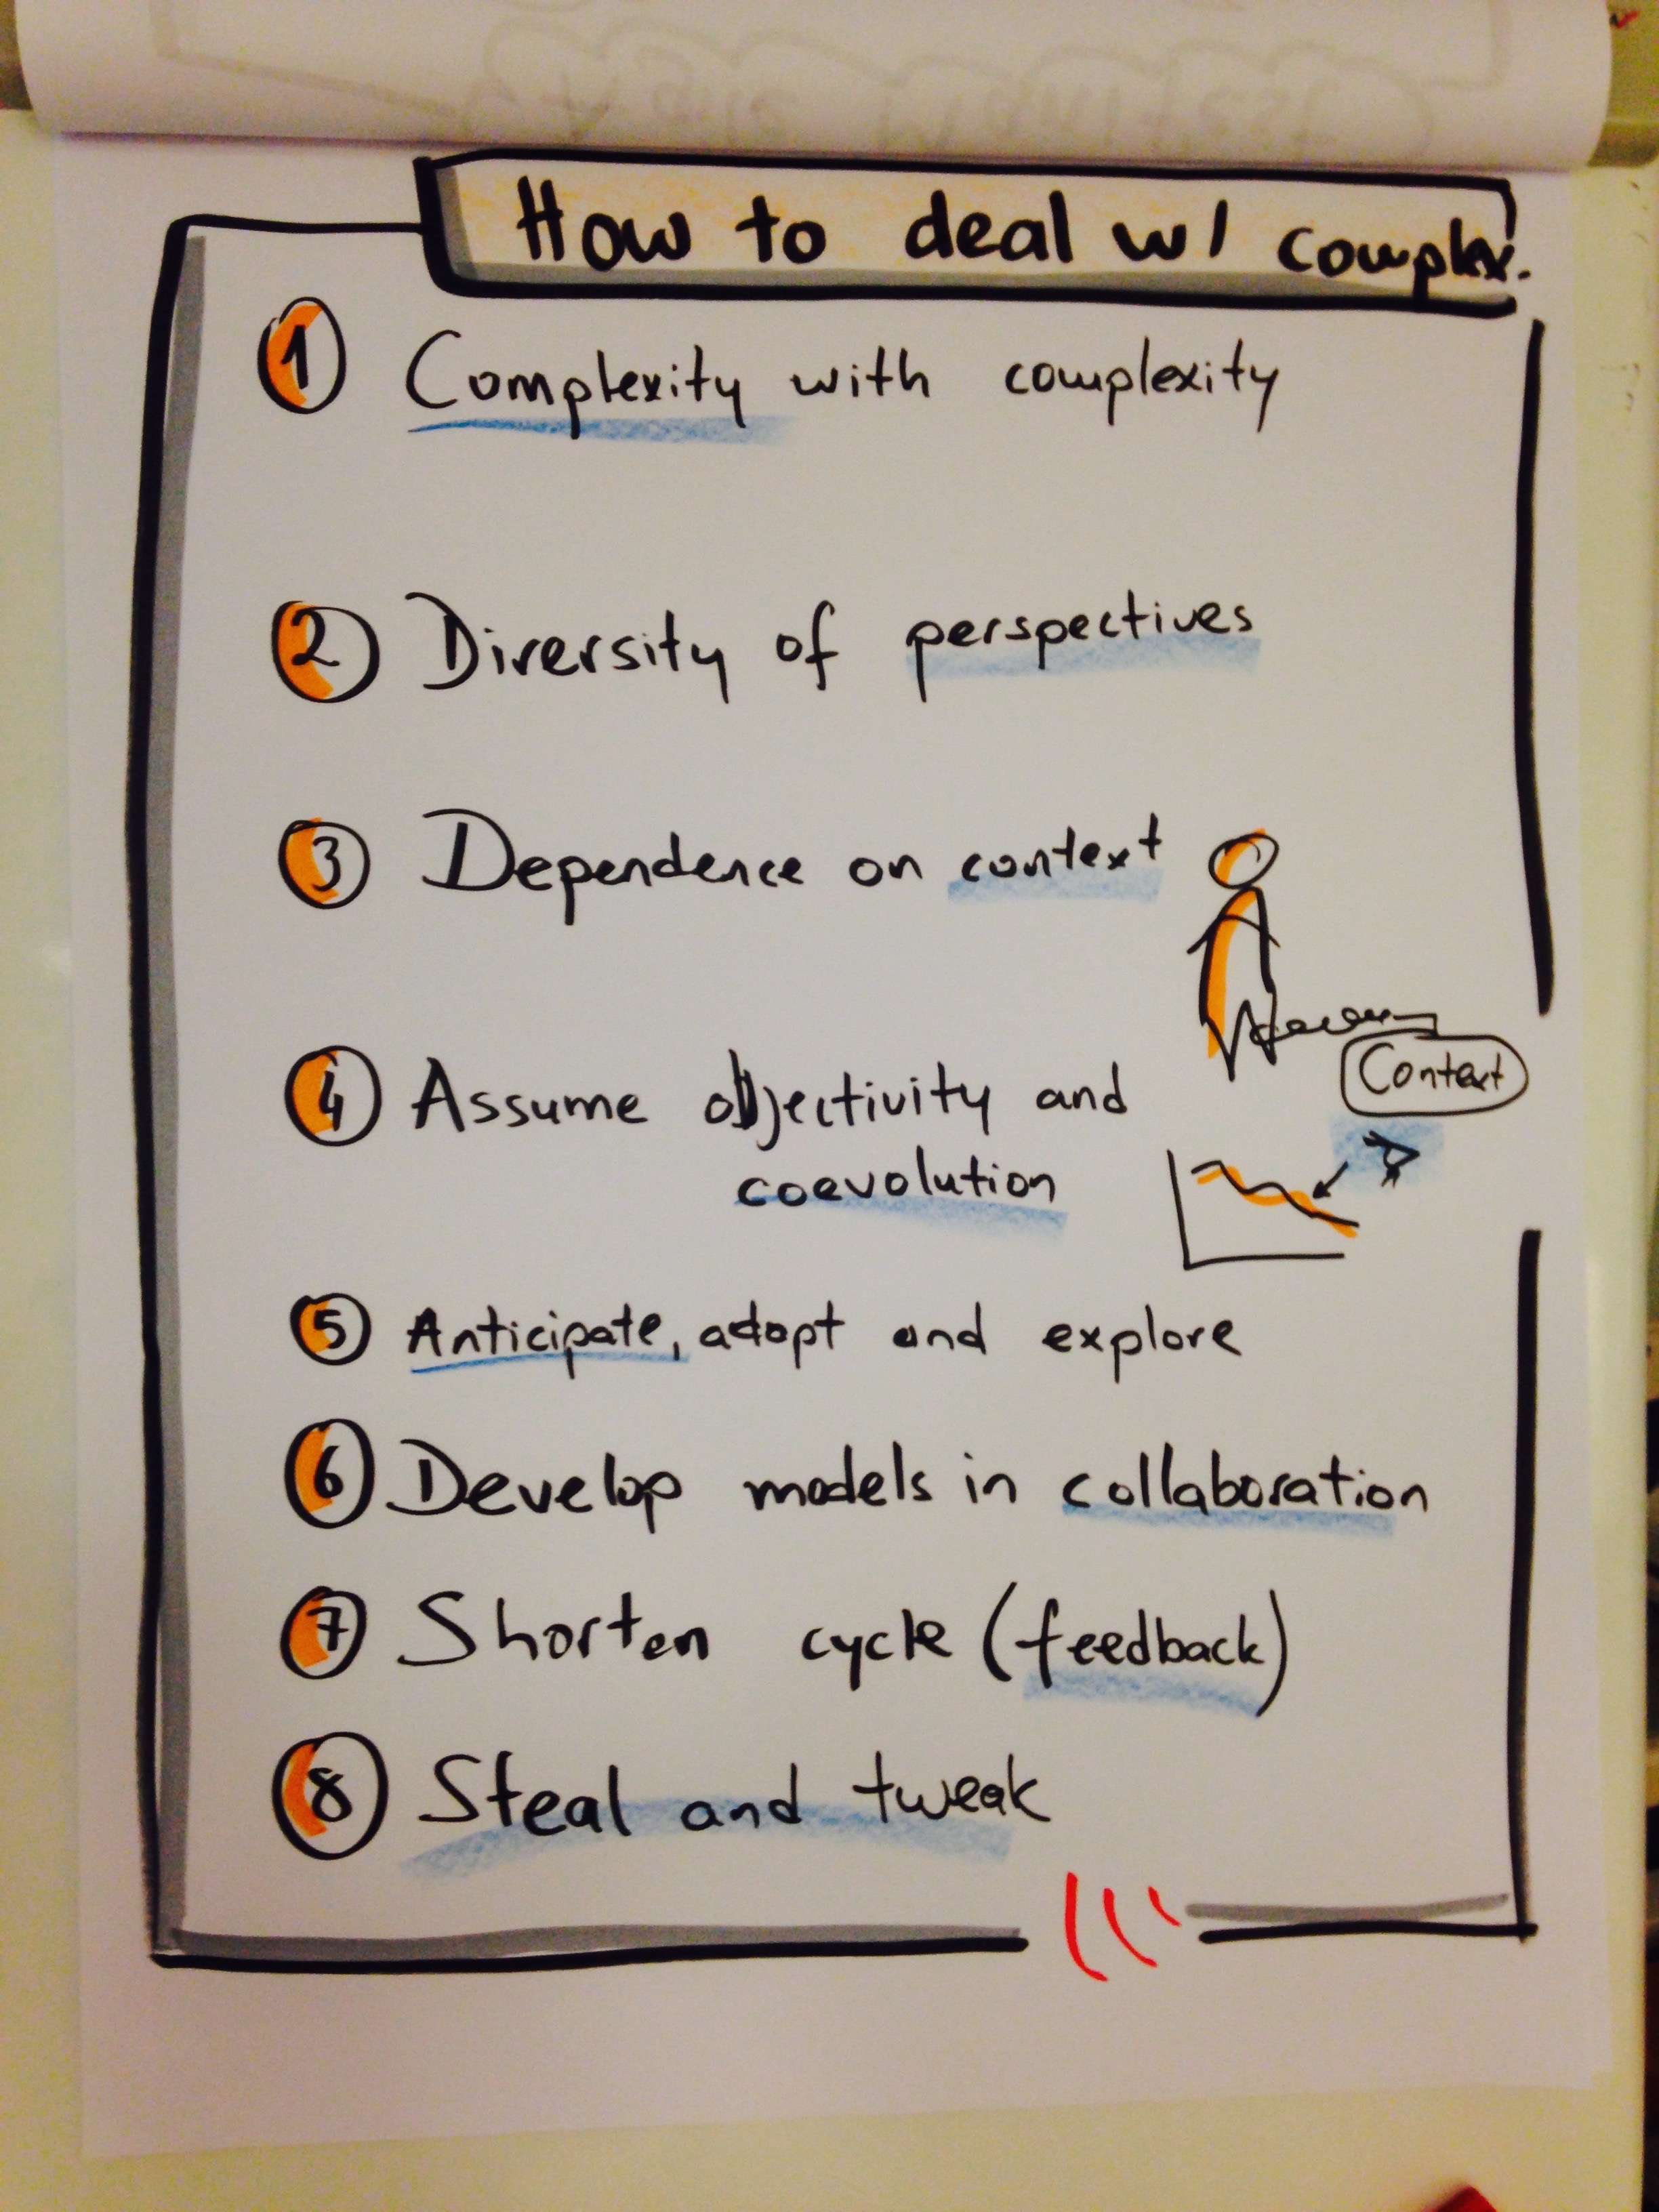 How to deal w/ complex.
1 Complexity with complexity
2 Diversity of perspectives
3 Dependence on context
4 Assume objectivity and
coevolution
Context
5 Anticipate, adopt and explore
6 Develop models in collaboration
7 Shorten cycle (feedback)
8 Steal and tweak